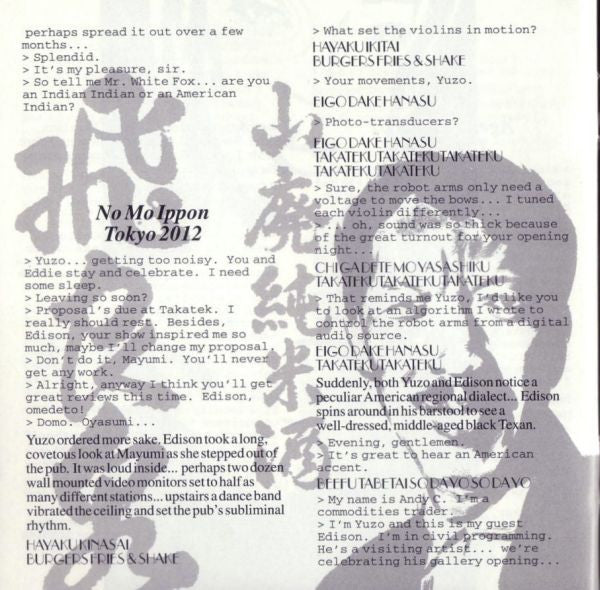 perhaps spread it out over a few
months...
> Splendid.
> It's my pleasure, sir.
> So tell me Mr. White Fox... are you
an Indian Indian or an American
Indian?
No Mo Ippon
Tokyo 2012
> Yuzo... getting too noisy. You and
Eddie stay and celebrate. I need
some sleep.
> Leaving so soon?
> Proposal's due at Takatek. I
really should rest. Besides,
Edison, your show inspired me so
much, maybe I'll change my proposal.
> Don't do it, Mayumi. You'll never
get any work.
> Alright, anyway I think you'll get
great reviews this time. Edison,
omedeto!
> Domo. Oyasumi...
Yuzo ordered more sake. Edison took a long,
covetous look at Mayumi as she stepped out of
the pub. It was loud inside... perhaps two dozen
wall mounted video monitors set to half as
many different stations... upstairs a dance band
vibrated the ceiling and set the pub's subliminal
rhythm.
HAYAKU KINASAI
BURGERS FRIES & SHAKE
> What set the violins in motion?
HAYAKU IKITAI
BURGERS FRIES & SHAKE
> Your movements, Yuzo.
EIGO DAKE HANASU
> Photo-transducers?
EIGO DAKE HANASU
TAKATEKU TAKATEKU TAKATEKU
TAKATEKU TAKATEKU
> Sure, the robot arms only need a
voltage to move the bows... I tuned
each violin differently...
> ... oh, sound was so thick because
of the great turnout for your opening
night...
CHI GA DETEMO YASASHIKU
TAKATEKU TAKATEKU TAKATEKU
> That reminds me Yuzo, I'd like you
to look at an algorithm I wrote to
control the robot arms from a digital
audio source.
EIGO DAKE HANASU
TAKATEKU TAKATEKU
Suddenly, both Yuzo and Edison notice a
peculiar American regional dialect... Edison
spins around in his barstool to see a
well-dressed, middle-aged black Texan.
> Evening, gentlemen.
> It's great to hear an American
accent.
BEEFU TABETAI SODAYO SODAYO
> My name is Andy C. I'm a
commodities trader.
> I'm Yuzo and this is my guest
Edison. I'm in civil programming.
He's a visiting artist... we're
celebrating his gallery opening...
山廃純米酒